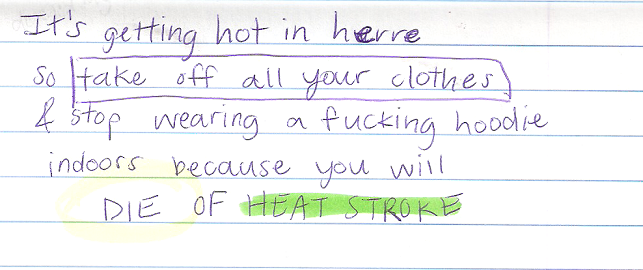 It's getting hot in herre
so take off all your clothes
& stop wearing a fucking hoodie
indoors because you will
DIE OF HEAT STROKE